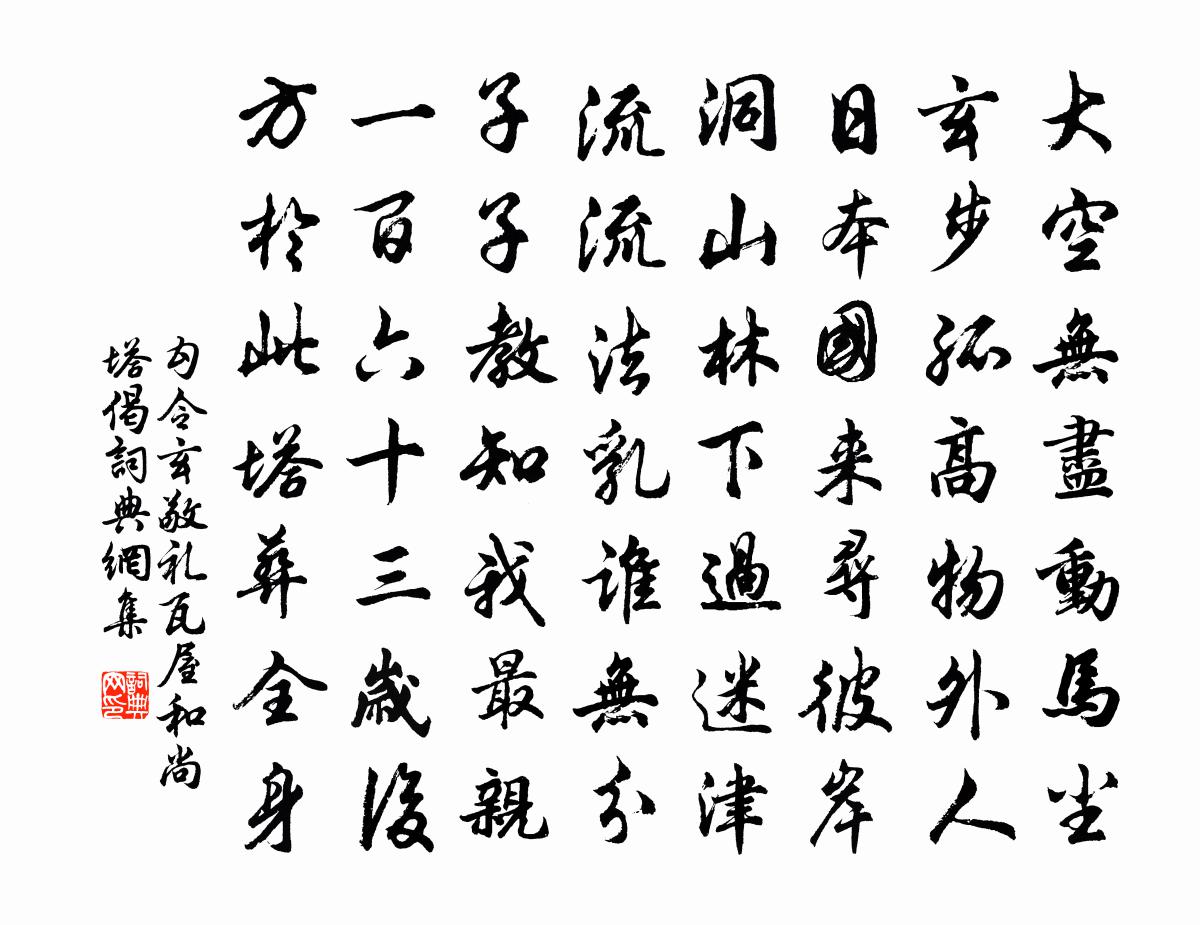 大空無盡動馬尘
玄步孤高物外人
日本國来尋彼岸
洞山林下過迷津
流流法乳谁無分
子子教知我最親
一百六十三歲後
方於此塔葬全身
句令玄敬礼瓦屋和尚
塔偈詞典網集
詞典
网印